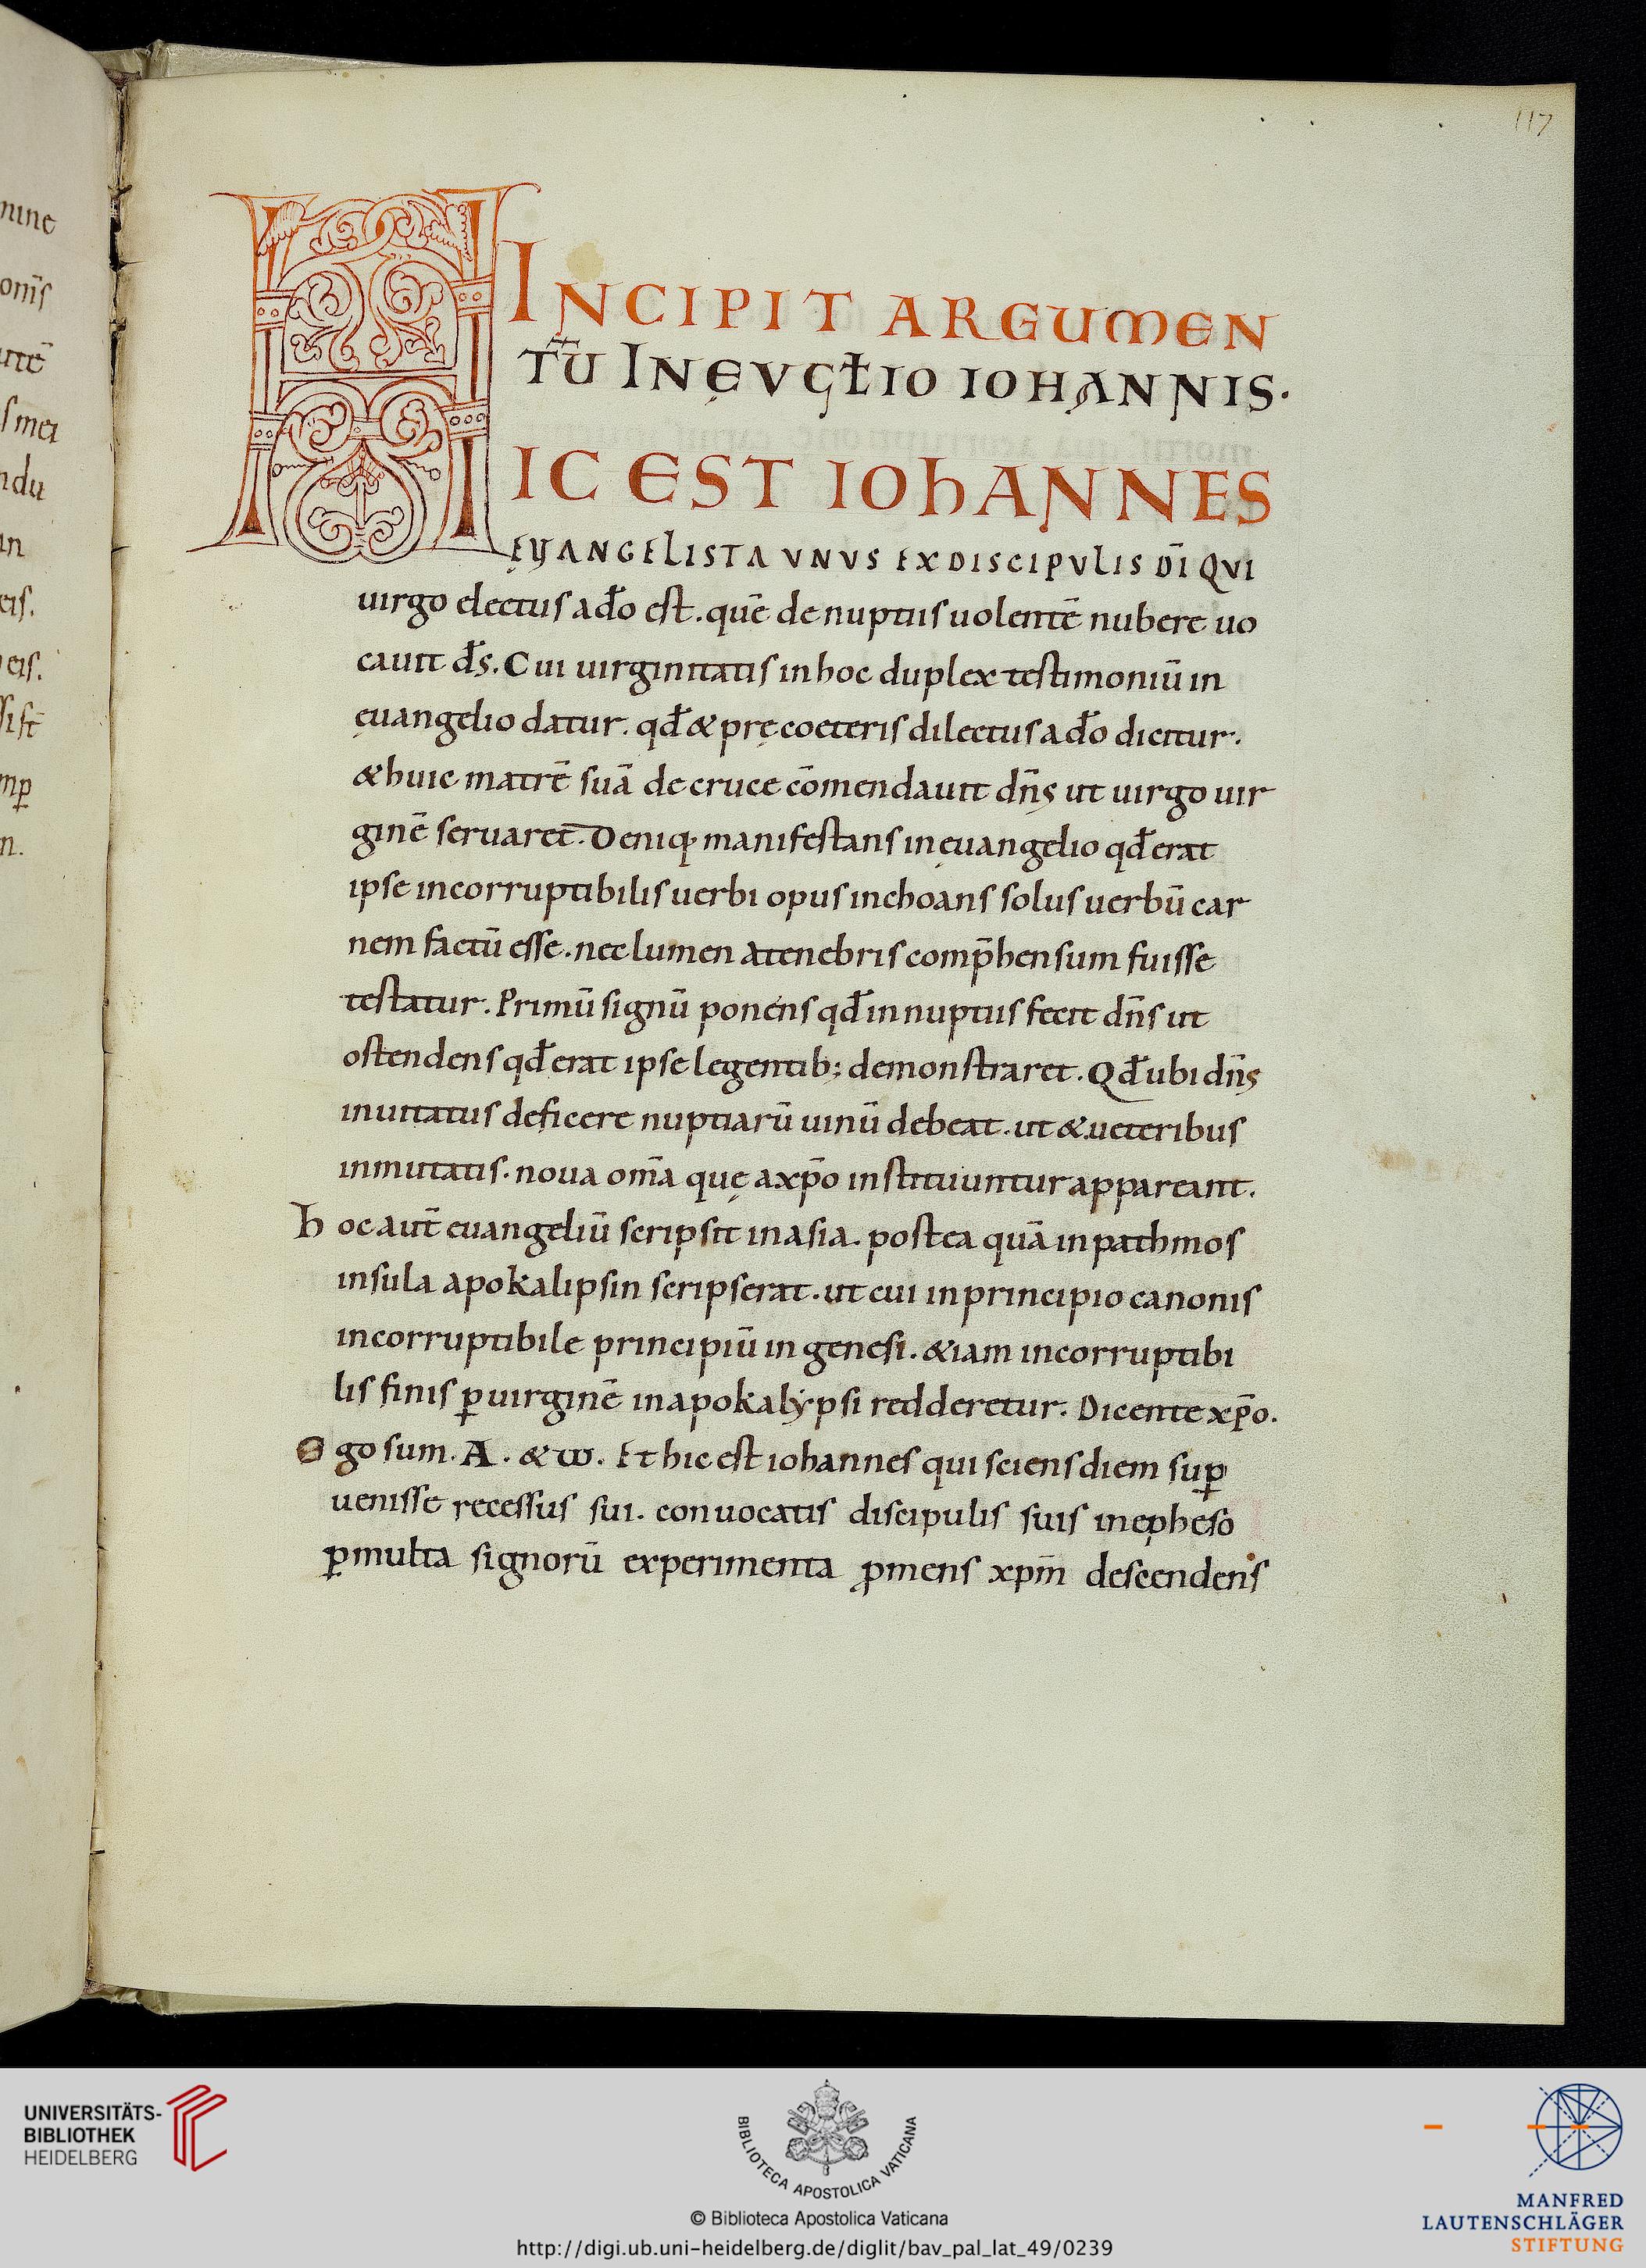 nine
onīs
utē
s mei
ndu
in
eis.
eis.
n.
117
INCIPIT ARGUMEN
TŪ IN EVGŁIO IOHANNIS·
HIC EST IOhANNES
ĘVANGELISTA VNVS EX DISCIPVLIS DĪ QVI
uirgo electus a dō est. quē de nuptiis uolentē nubere uo
cauit ds̄. Cui uirginitatis in hoc duplex testimoniū in
ęuangelio datur. qđ & prę coeteris dilectus a dō dicitur.
& huic matrē suā de cruce cōmendauit dn̄s ut uirgo uir
ginē seruaret. Deniq; manifestans in ęuangelio qđ erat
ipse incorruptibilis uerbi opus inchoans solus uerbū car
nem factū esse. nec lumen a tenebris comp̄hensum fuisse
testatur. Primū signū ponens qđ in nuptiis fecit dn̄s ut
ostendens qđ erat ipse legentib; demonstraret. Qđ ubi dn̄s
inuitatus deficere nuptiarū uinū debeat. ut & ueteribus
inmutatis. noua om̄a quę a xp̄o instituuntur appareant.
hoc aut̄ euangeliū scripsit in asia. postea quā in pathmos
insula apokalipsin scripserat. ut cui in principio canonis
incorruptibile principiū in genesi. & iam incorruptibi
lis finis ꝑ uirginē in apokalẏpsi redderetur. Dicente xp̄o.
Ego sum. A. & ω. Et hic est iohannes qui sciens diem suꝑ
uenisse recessus sui. conuocatis discipulis suis in epheso
ꝑ multa signorū experimenta ꝓmens xpm̄ descendens
UNIVERSITÄTS-
BIBLIOTHEK
HEIDELBERG
BIBLIOTECA APOSTOLICA VATICANA
© Biblioteca Apostolica Vaticana
http://digi.ub.uni-heidelberg.de/diglit/bav_pal_lat_49/0239
MANFRED
LAUTENSCHLÄGER
STIFTUNG